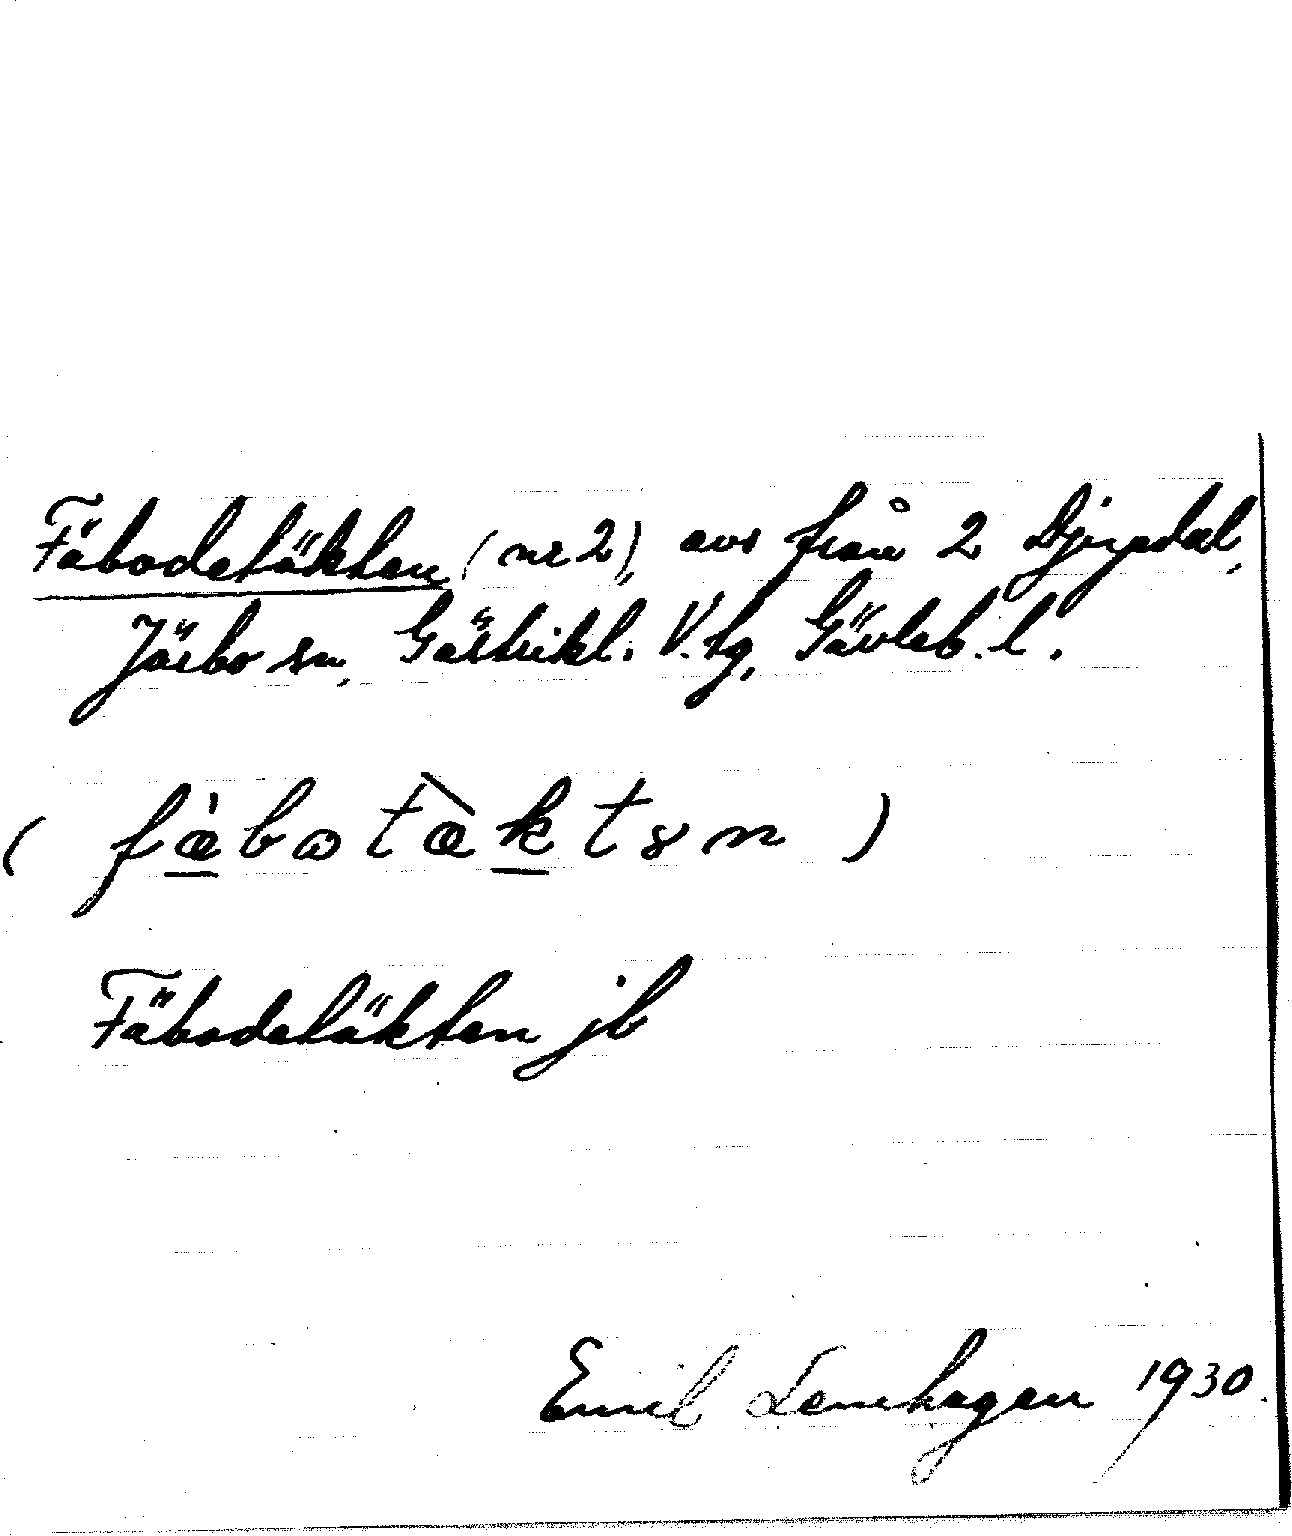 Fäbodetäkten (nr 2), avs från 2 Djupdal,
Järbo sn, Gästrikl. V. tg, Gävleb. l.
Fäbodetäkten jb
Emil Lenehagen 1930.